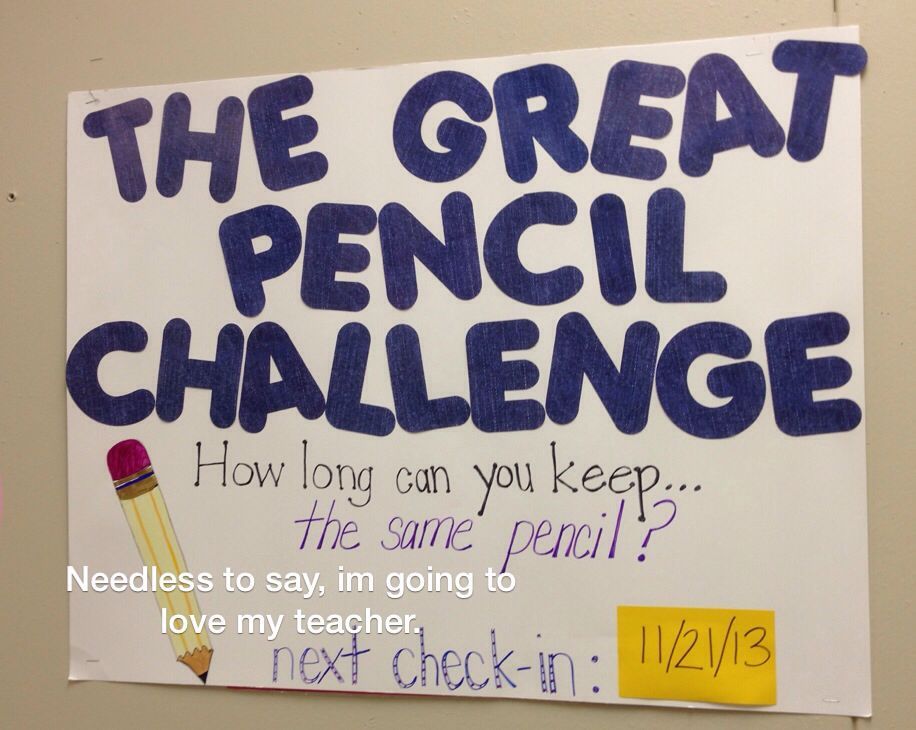 THE GREAT
PENCIL
CHALLENGE
How long can you keep...
the same pencil?
Needless to say, im going to
love my teacher.
next check-in: 11/21/13